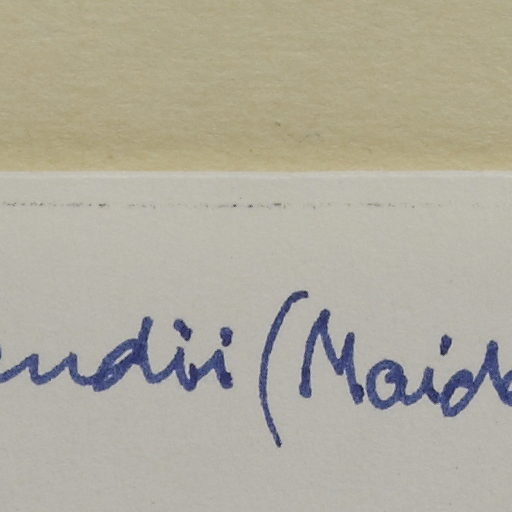 endii (Maid